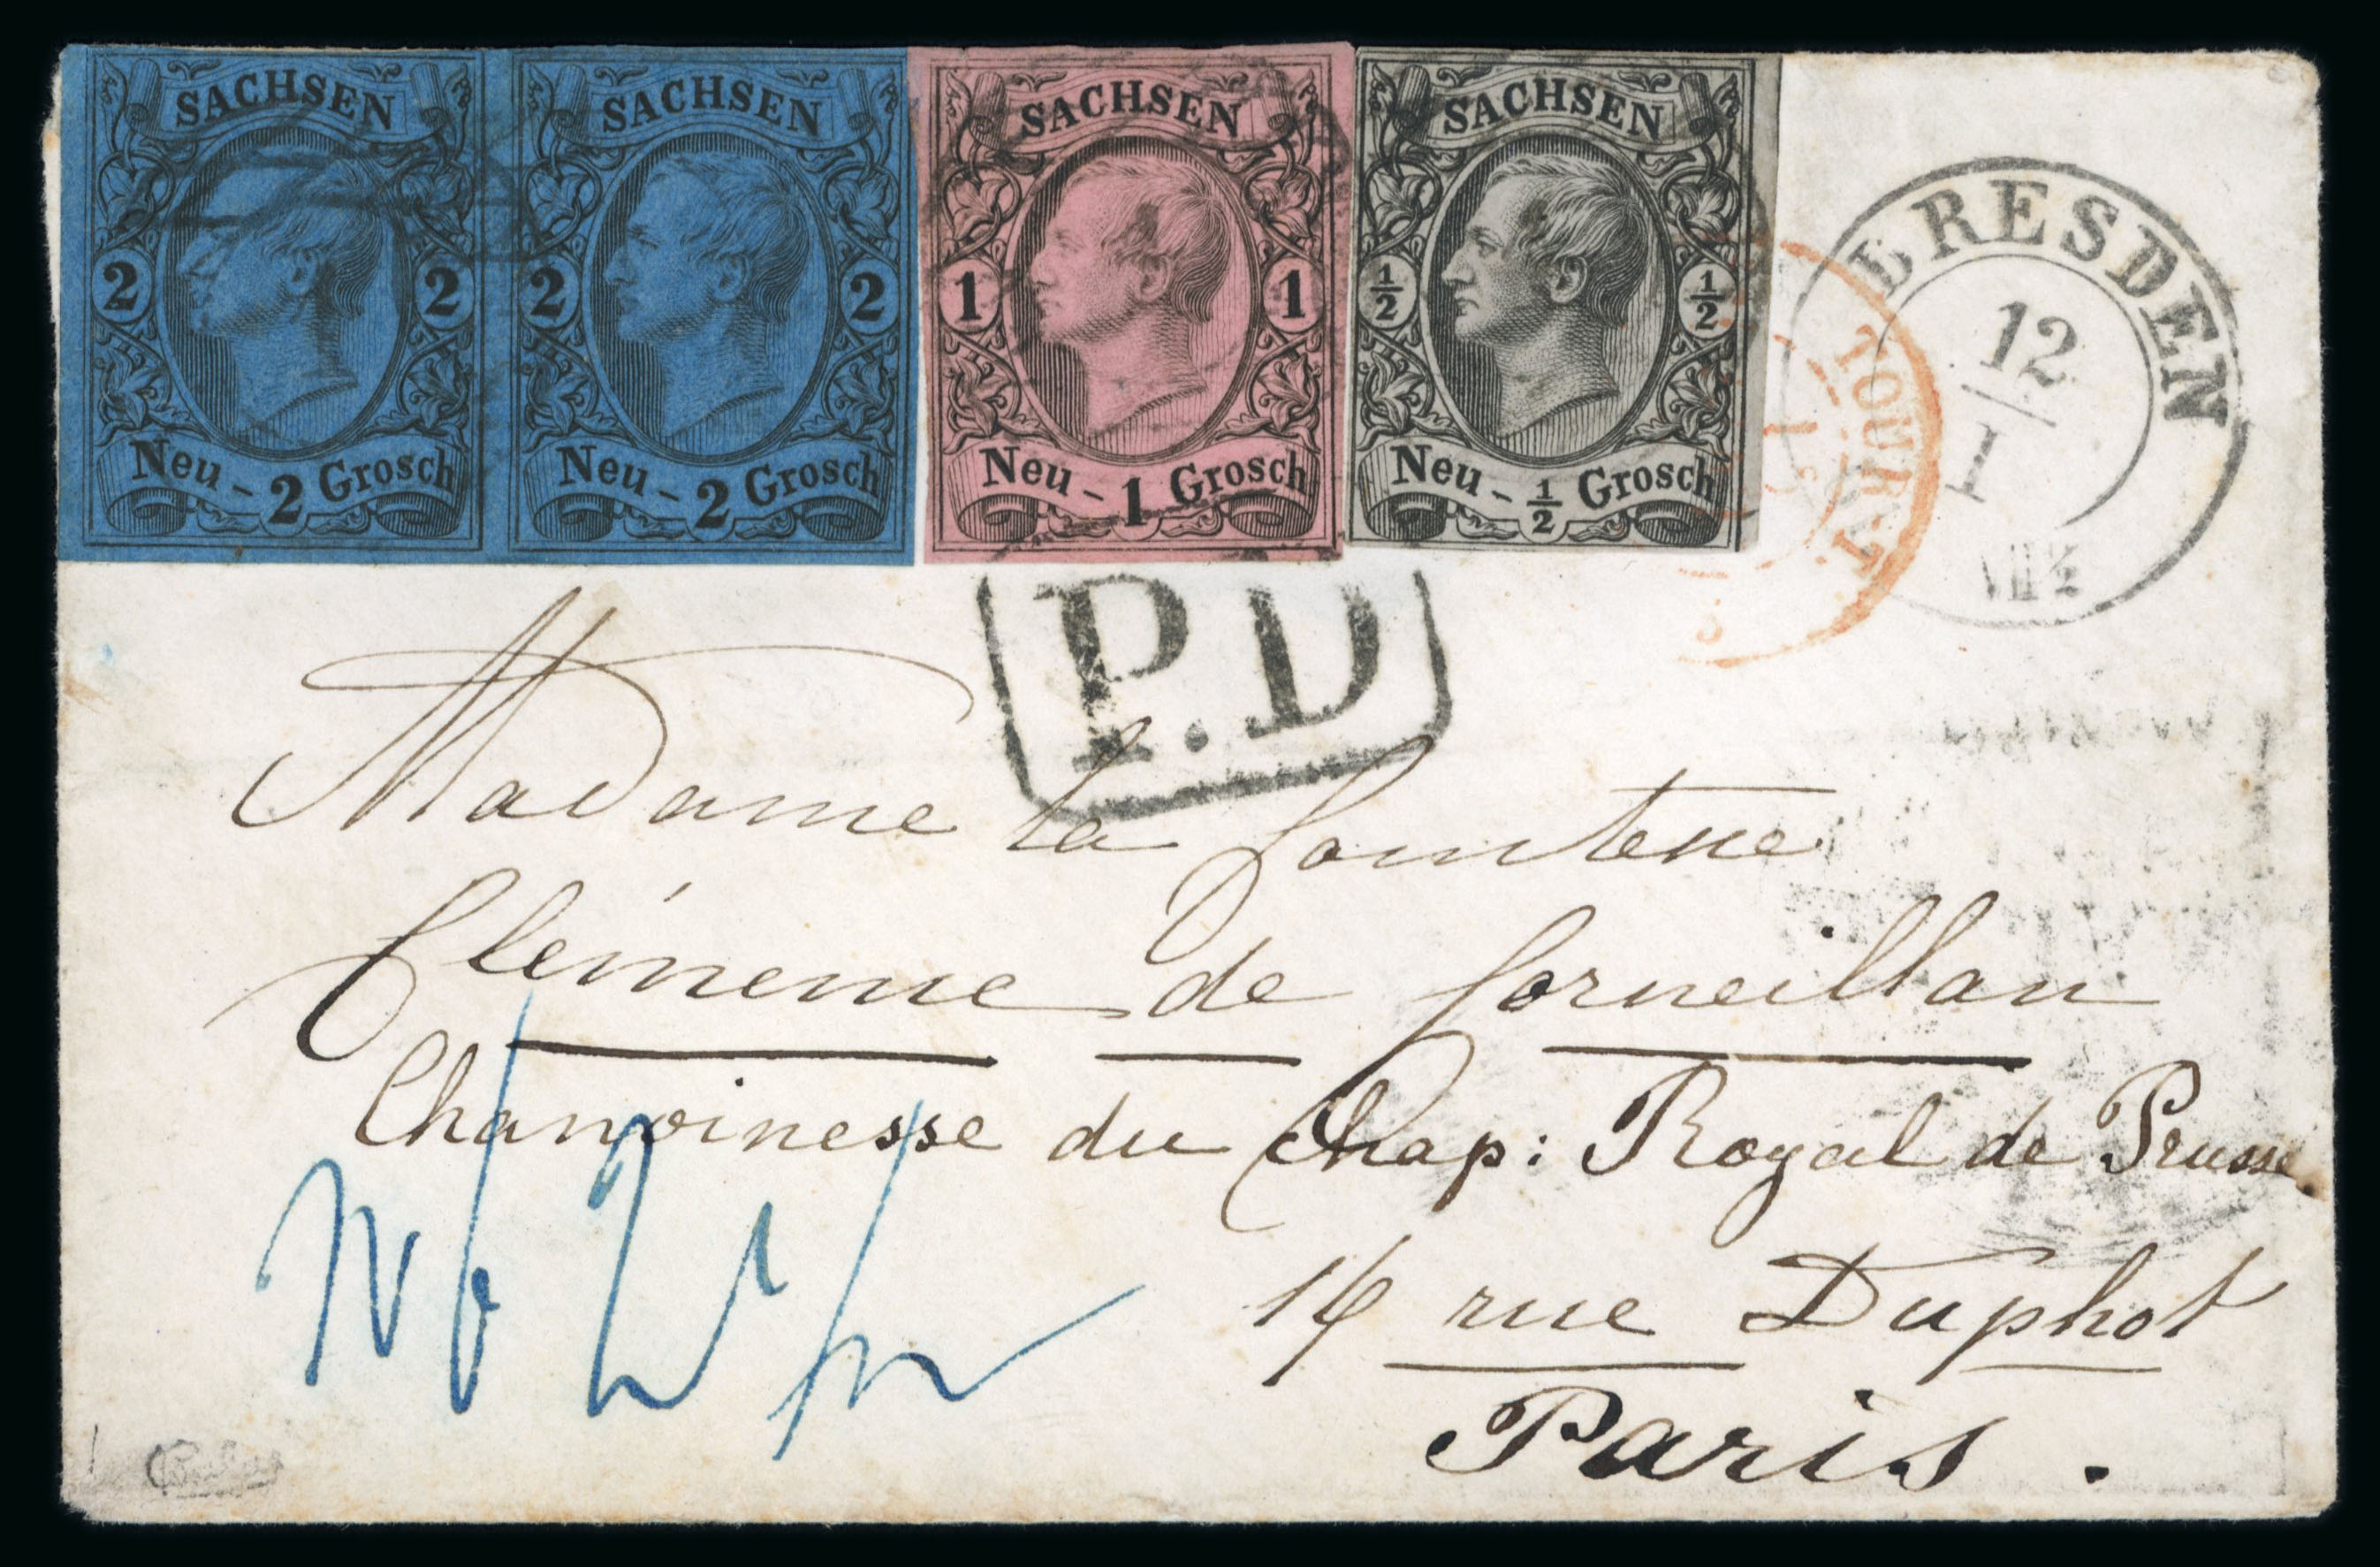 SACHSEN
2 2
Neu - 2 Grosch
SACHSEN
2 2
Neu - 2 Grosch
SACHSEN
1 1
Neu - 1 Grosch
SACHSEN
½ ½
Neu - ½ Grosch
DRESDEN
12
I
VII½
TOUR-T.
P.D
Madame la Comtesse
Clémence de Corneillan
Chanoinesse du Chap: Royal de Prusse
rue Duphot
Paris.